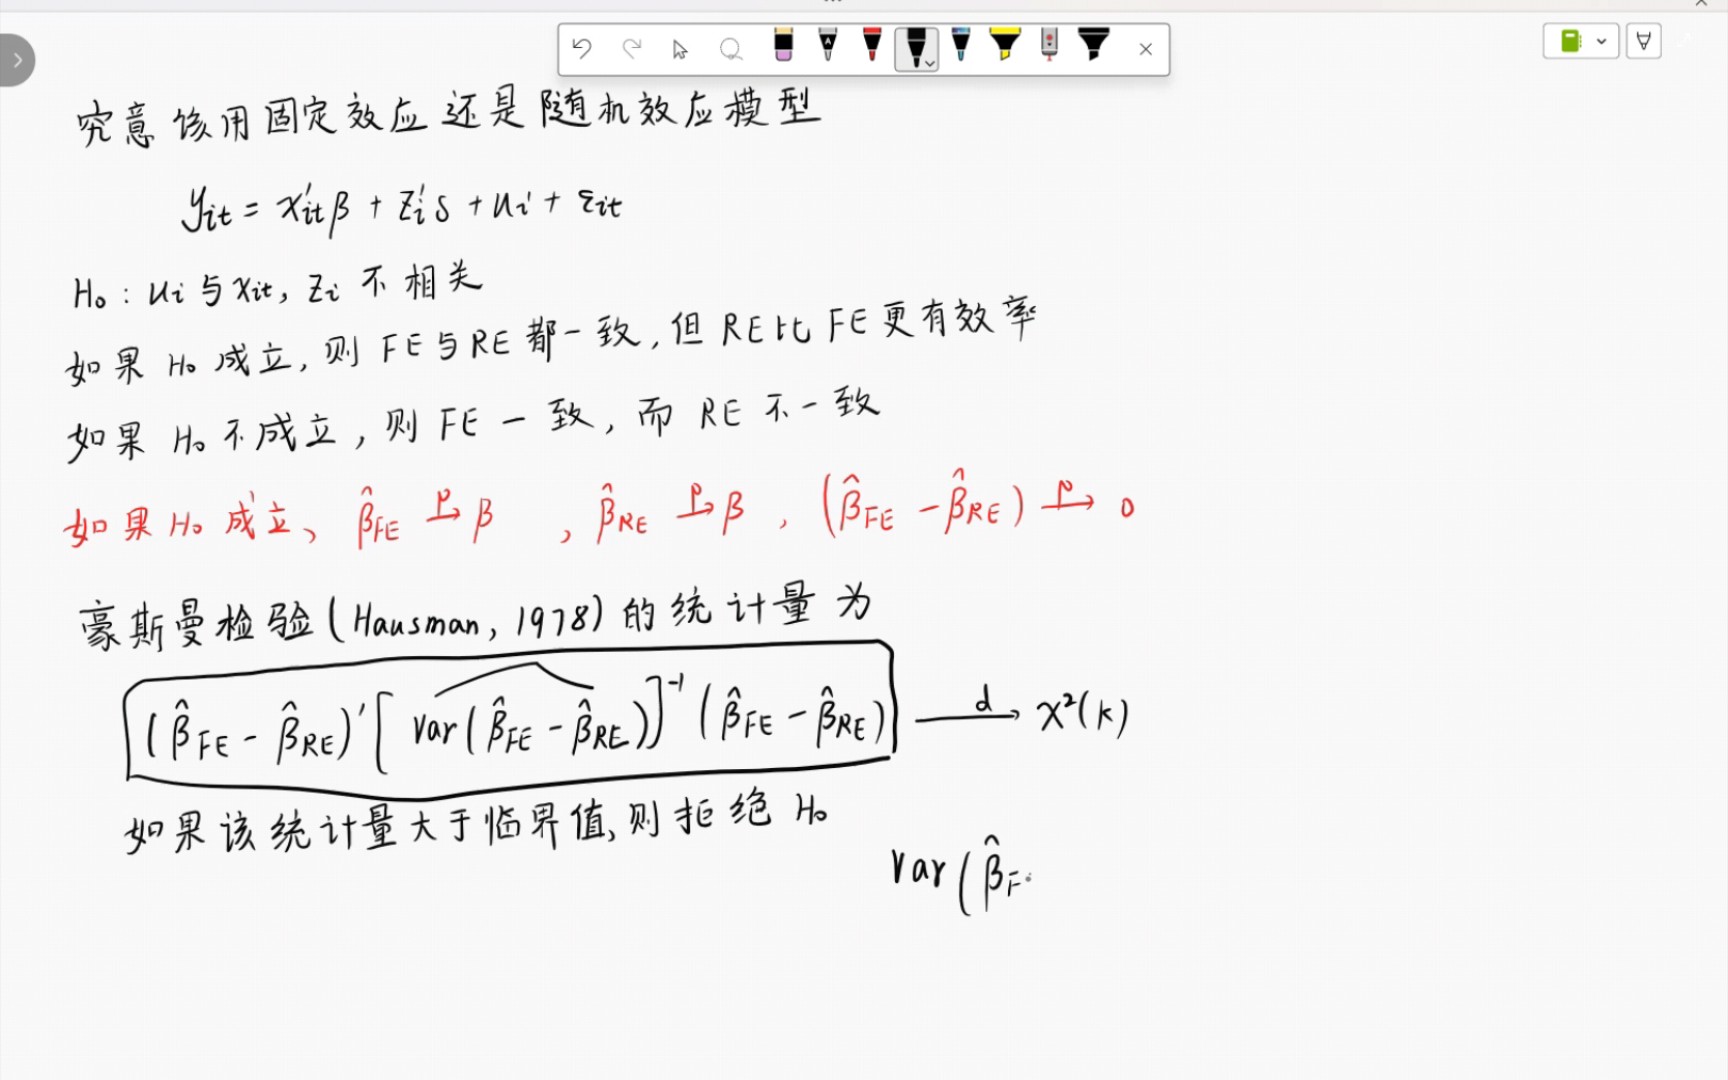 究意该用固定效应还是随机效应模型
yit = x'itβ + z'iδ + ui + εit
H₀: ui与xit, zi不相关
如果H₀成立,则FE与RE都一致,但RE比FE更有效率
如果H₀不成立,则FE一致,而RE不一致
如果H₀成立、β̂FE →p β , β̂RE →p β , (β̂FE - β̂RE) →p 0
豪斯曼检验(Hausman, 1978)的统计量为
(β̂FE - β̂RE)'[Var(β̂FE - β̂RE)]⁻¹(β̂FE - β̂RE) →d χ²(k)
如果该统计量大于临界值,则拒绝H₀
Var(β̂F